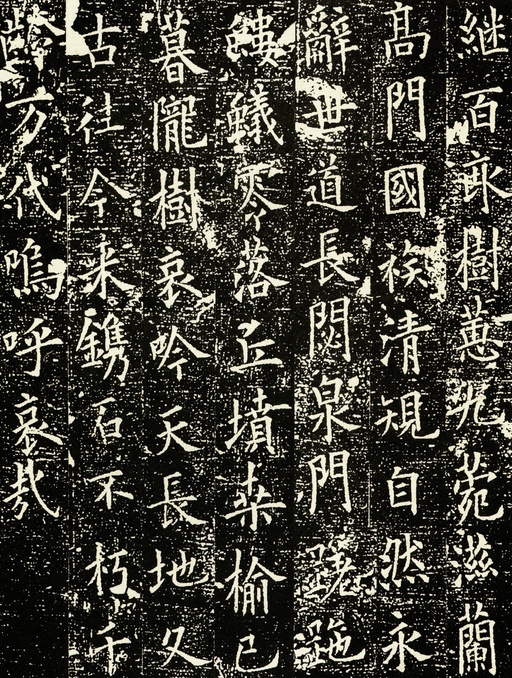 継百畝樹蕙九菀滋蘭
髙門國族清規自然永
辭世道長閟泉門
螻蟻零落丘墳桒榆已
暮隴樹哀吟天長地久
古往今来鐫石不朽千
齡万代嗚呼哀哉